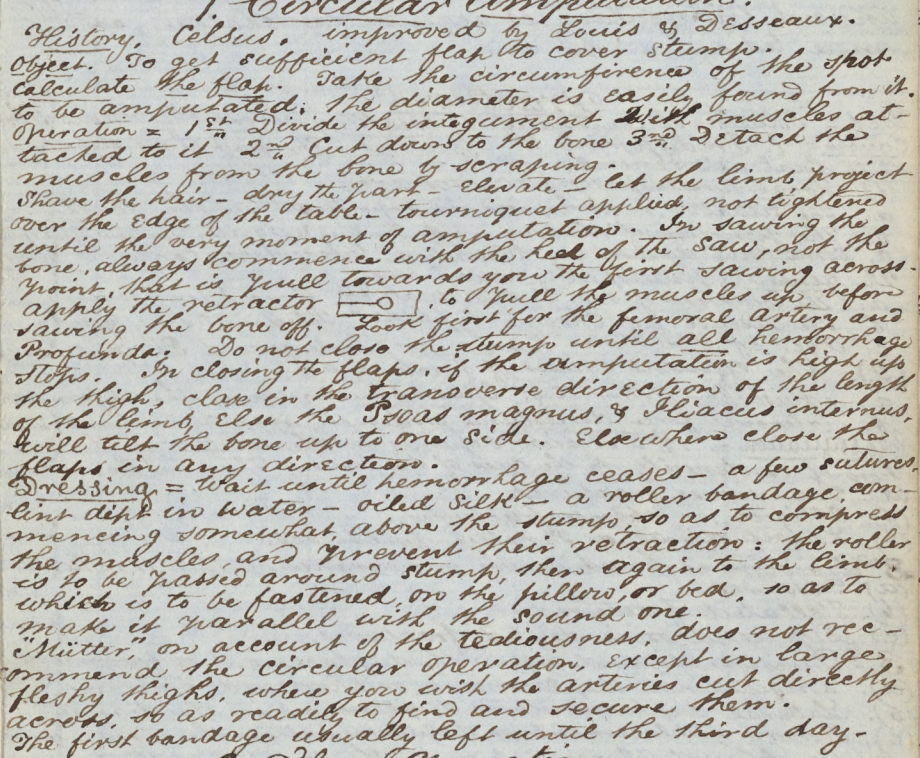 1 Circular Amputation.
History. Celsus. improved by Louis & Desseaux.
Object. To get sufficient flap to cover stump.
Calculate the flap. Take the circumfirence of the spot
to be amputated; the diameter is easily found from it.
Operation = 1st Divide the integument with muscles at-
tached to it 2nd Cut down to the bone 3rd Detach the
muscles from the bone by scraping.
Shave the hair - dry the part - Elevate - let the limb project
over the edge of the table - tourniquet applied, not tightened
until the very moment of amputation. In sawing the
bone, always commence with the heel of the saw, not the
point, that is pull towards you the first sawing across.
apply the retractor , to pull the muscles up before
sawing the bone off. Look first for the femoral artery and
Profunda. Do not close the stump until all hemorrhage
stops. In closing the flaps, if the amputation is high up
the thigh, close in the transverse direction of the length
of the limb, Else the Psoas magnus, & Iliacus internus,
will tilt the bone up to one side. Elsewhere close the
flaps in any direction.
Dressing = Wait until hemorrhage ceases - a few sutures
lint dipt in water - oiled silk - a roller bandage, com-
mencing somewhat above the stump, so as to compress
the muscles, and prevent their retraction: the roller
is to be passed around stump, then again to the limb.
which is to be fastened, on the pillow, or bed, so as to
make it parallel with the sound one.
"Mütter," on account of the tediousness, does not rec-
ommend the circular operation, except in large
fleshy thighs, where you wish the arteries cut directly
across, so as readily to find and secure them.
The first bandage usually left until the third day.